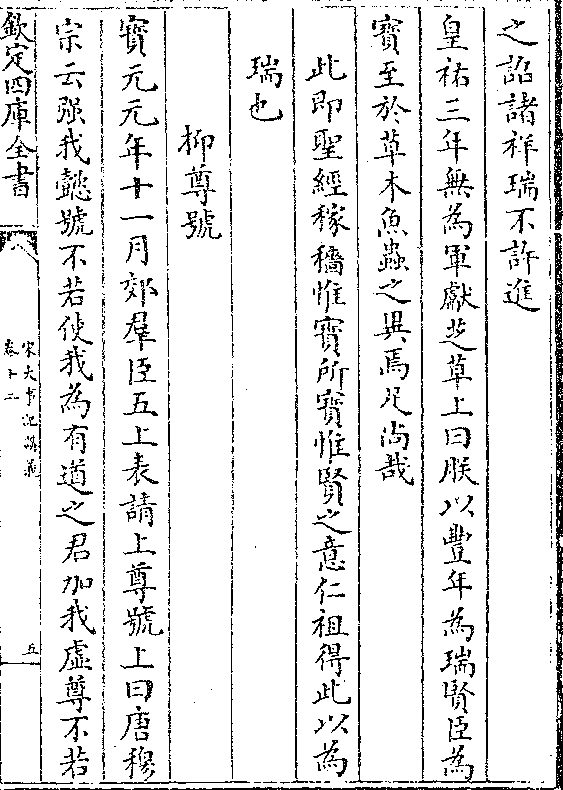 之詔諸祥瑞不許進
皇祐三年無為軍獻芝草上曰朕以豐年為瑞賢臣為
寶至於草木魚蟲之異焉足尚哉
此即聖經稼穡惟寶所寶惟賢之意仁祖得此以為
瑞也
抑尊號
寶元元年十一月郊羣臣五上表請上尊號上曰唐穆
宗云强我懿號不若使我為有道之君加我虛尊不若
欽定四庫全書
宋大事記講義
卷十二
五